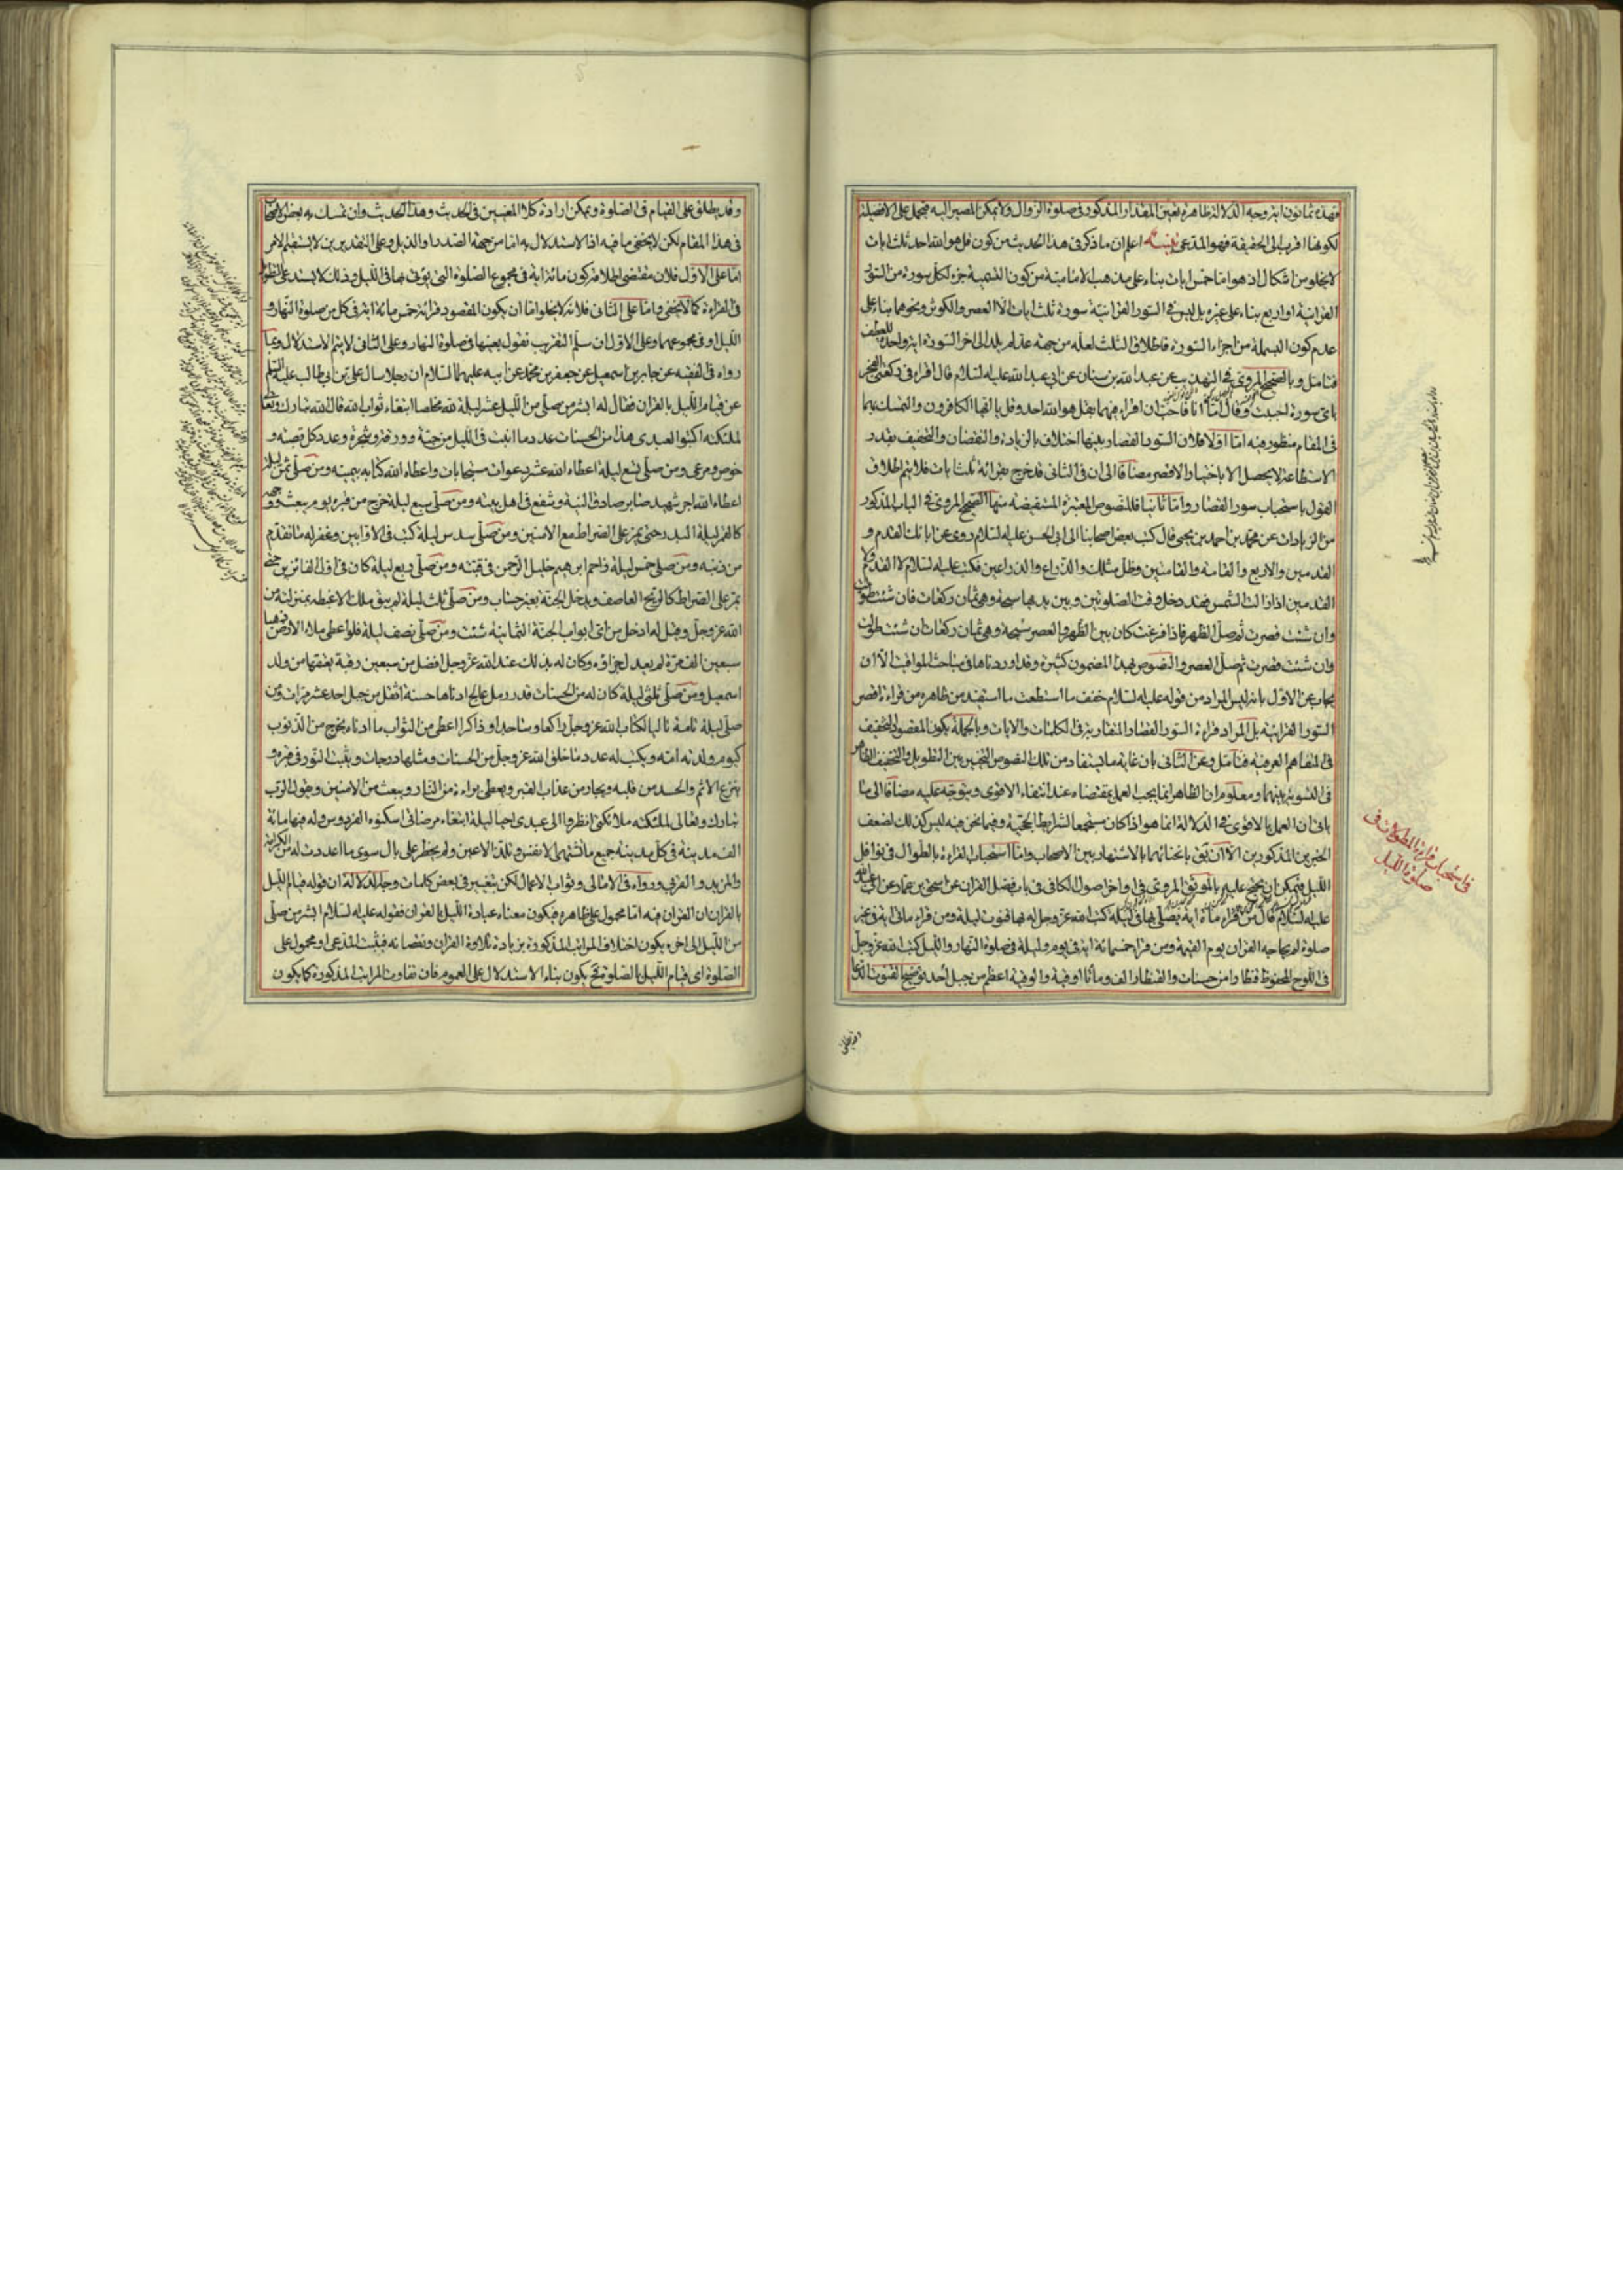 فهذه ثمانون اية وجه الدلالة ظاهرة تعين المقدار المذكور في صلوة الزوال ولا يمكن المصير اليه فيحمل على الافضلية
لكونها اقرب الى الحقيقة فهو المدعى تنبيه اعلم ان ما ذكر في هذا الحديث من كون قل هو الله احد ثلث ايات
لا يخلو من اشكال اذ هو اما خمس ايات بناء على مذهب الامامية من كون التسمية جزء لكل سورة من السور
القرانية او اربع بناء على غيره بل ليس في السور القرانية سورة ثلث ايات الا العصر والكوثر ونحوهما بناء على
عدم كون البسملة من اجزاء السورة فاطلاق الثلث لعله من جهة عد لم يلد الى اخر السورة اية واحدة للعطف
فتامل وبالصحيح المروي في التهذيب عن عبد الله بن سنان عن ابي عبد الله عليه السلام قال اقراء في ركعتي الفجر
باي سورة احببت وقال اما انا فاحب ان اقراء فيهما بقل هو الله احد وقل يا ايها الكافرون والتمسك بهما
في المقام منظور فيه اما اولا فلان السور القصار بينها اختلاف بالزيادة والنقصان والتخفيف بقدر
الاستطاعة لا يحصل الا باختيار الاقصر مضافا الى ان في الثاني قد خرج بقرائة ثلث ايات فلا يتم اطلاق
القول باستحباب سور القصار واما ثانيا فللنصوص المعتبرة المستفيضة منها الصحيح المروي في الباب المذكور
من الزيادات عن محمد بن احمد بن يحيى قال كتب بعض اصحابنا الى ابي الحسن عليه السلام روى عن ابائك القدم و
القدمين والاربع والقامة والقامتين وظل مثلك والذراع والذراعين فكتب عليه السلام لا القدم ولا
القدمين اذا زالت الشمس فقد دخل وقت الصلوتين وبين يديها سبحة وهي ثمان ركعات فان شئت طولت
وان شئت قصرت ثم صل الظهر فاذا فرغت كان بين الظهر والعصر سبحة وهي ثمان ركعات ان شئت طولت
وان شئت قصرت ثم صل العصر والنصوص بهذا المضمون كثيرة وقد اوردناها في مباحث المواقيت الا ان
يجاب عن الاول بانه ليس المراد من قوله عليه السلام خفف ما استطعت ما استفيد من ظاهره من قراءة اقصر
السور القرانية بل المراد قراءة السور القصار المتقاربة في الكلمات والايات وبالجملة يكون المقصود التخفيف
في المفاهم العرفية فتامل وعن الثاني بان غاية ما يستفاد من تلك النصوص التخيير بين التطويل والتخفيف الظاهر
في التسوية بينهما ومعلوم ان الظاهر انما يجب العمل بمقتضاه عند انتفاء الاقوى ويتوجه عليه مضافا الى ما
ياتي ان العمل بالاقوى في الدلالة انما هو اذا كان مستجمعا لشرايط الحجية وفيما نحن فيه ليس كذلك لضعف
الخبرين المذكورين الا ان يق بانجبائهما بالاشتهار بين الاصحاب واما استحباب القراءة بالطوال في نوافل
الليل فيمكن ان يحتج عليه بالموثق المروي في اواخر اصول الكافي في باب فضل القران عن اسحق بن عمار عن ابي عبد الله
عليه السلام قال من قراء مأة اية يصلي بها في ليلة كتب الله عز وجل له بها قنوت ليلة ومن قراء مائتي اية في غير
صلوة لم يحاجه القران يوم القيمة ومن قراء خمسمائة اية في يوم وليلة في صلوة النهار والليل كتب الله عز وجل
في اللوح المحفوظ قنطارا من حسنات والقنطار الف ومأتا اوقية والوقية اعظم من جبل احد توضيح القنوت الدعا
في استحباب قراءة المطولات في
صلوة الليل
وقد يطلق
وقد يطلق على القيام في الصلوة ويمكن ارادة كلا المعنيين في الحديث وهذا الحديث وان تمسك به بعض الاصحاب
في هذا المقام لكن لا يخفى ما فيه اذ الاستدلال به اما من جهة الصدر او الذيل وعلى التقديرين لا يستقيم الامر
اما على الاول فلان مقتضى اطلاقه كون مائة اية في مجموع الصلوة التي يؤتى بها في الليل وذلك لا يستدعي التطويل
في القراءة كما لا يخفى واما على الثاني فلانه لا يخلو اما ان يكون المقصود قرائة خمس مائة اية في كل من صلوة النهار و
الليل او في مجموعهما وعلى الاول ان سلم التقريب نقول بعينها في صلوة النهار وعلى الثاني لا يتم الاستدلال وبما
رواه في الفقيه عن جابر بن اسمعيل عن جعفر بن محمد عن ابيه عليهما السلام ان رجلا سال علي بن ابي طالب عليه السلام
عن قيام الليل بالقران فقال له ابشر من صلى من الليل عشر ليلة لله مخلصا ابتغاء ثواب الله قال الله تبارك وتعالى
لملئكته اكتبوا لعبدي هذا من الحسنات عدد ما انبت في الليل من حبة وورقة وشجرة وعدد كل قصبة و
خوص ومرعى ومن صلى تسع ليلة اعطاه الله عشر دعوات مستجابات واعطاه الله كتابه بيمينه ومن صلى ثمن ليلة
اعطاه الله اجر شهيد صابر صادق النية وشفع في اهل بيته ومن صلى سبع ليلة خرج من قبره يوم يبعث ووجهه
كالقمر ليلة البدر حتى يمر على الصراط مع الامنين ومن صلى سدس ليلة كتب في الاوابين وغفر له ما تقدم
من ذنبه ومن صلى خمس ليلة زاحم ابرهيم خليل الرحمن في قبته ومن صلى ربع ليلة كان في اول الفائزين حتى
يمر على الصراط كالريح العاصف ويدخل الجنة بغير حساب ومن صلى ثلث ليلة لم يبق ملك الا غبطه بمنزلته من
الله عز وجل وقيل له ادخل من اي ابواب الجنة الثمانية شئت ومن صلى نصف ليلة فلو اعطي ملاء الارض ذهبا
سبعين الف مرة لم يعدل جزاؤه وكان له بذلك عند الله عز وجل افضل من سبعين رقبة يعتقها من ولد
اسمعيل ومن صلى ثلثي ليلة كان له من الحسنات قدر رمل عالج ادناها حسنة اثقل من جبل احد عشر مرات ومن
صلى ليلة تامة تاليا لكتاب الله عز وجل راكعا وساجدا وذاكرا اعطي من الثواب ما ادناه يخرج من الذنوب
كيوم ولدته امه ويكتب له عدد ما خلق الله عز وجل من الحسنات ومثلها درجات ويثبت النور في قبره و
ينزع الاثم والحسد من قلبه ويجار من عذاب القبر ويعطى براءة من النار ويبعث من الامنين ويقول الرب
تبارك وتعالى لملئكته ملائكتي انظروا الى عبدي احيا ليلة ابتغاء مرضاتي اسكنوه الفردوس وله فيها مائة
الف مدينة في كل مدينة جميع ما تشتهي الانفس وتلذ الاعين ولم يخطر على بال سوى ما اعددت له من الكرامة
والمزيد والقربى ورواه في الامالي وثواب الاعمال لكن بتغيير في بعض كلمات وجه الدلالة ان قوله قيام الليل
بالقران ان القران فيه اما محمول على ظاهره فيكون معناه عبادة الليل بالقران فقوله عليه السلام ابشر من صلى
من الليل الى اخره يكون اختلاف المراتب المذكورة بزيادة تلاوة القران ونقصانه فيثبت المدعى او محمول على
الصلوة اي قيام الليل بالصلوة فح يكون بناء الاستدلال على العموم فان تفاوت المراتب المذكورة كما يكون